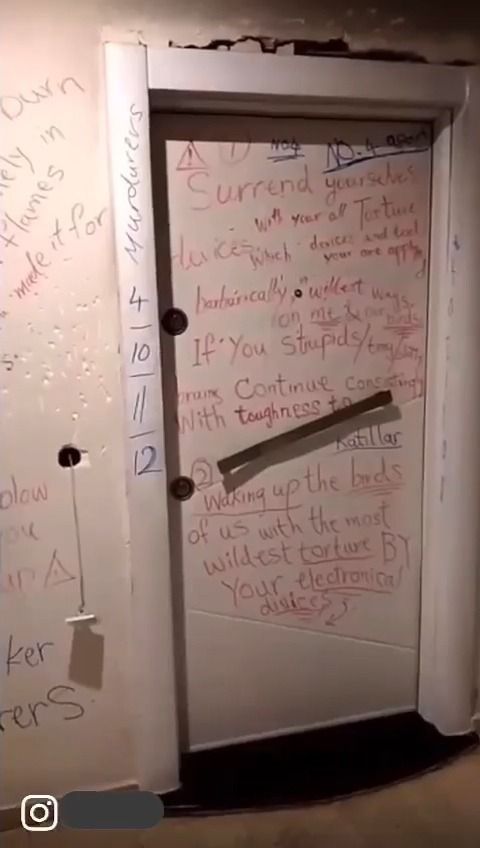 burn
in
flames
made it for
Murdurers
4
10
11
12
1 No4 NO. 4
Surrend yourselves
with your all Torture
devices which devices and tool
your are apply
barbarically, wildest ways
on me & our birds
If You Stupids/
brains Continue Consistingly
With toughness to
Katillar
2
Waking up the birds
of us with the most
wildest torture BY
your electronical
divices
ker
rers